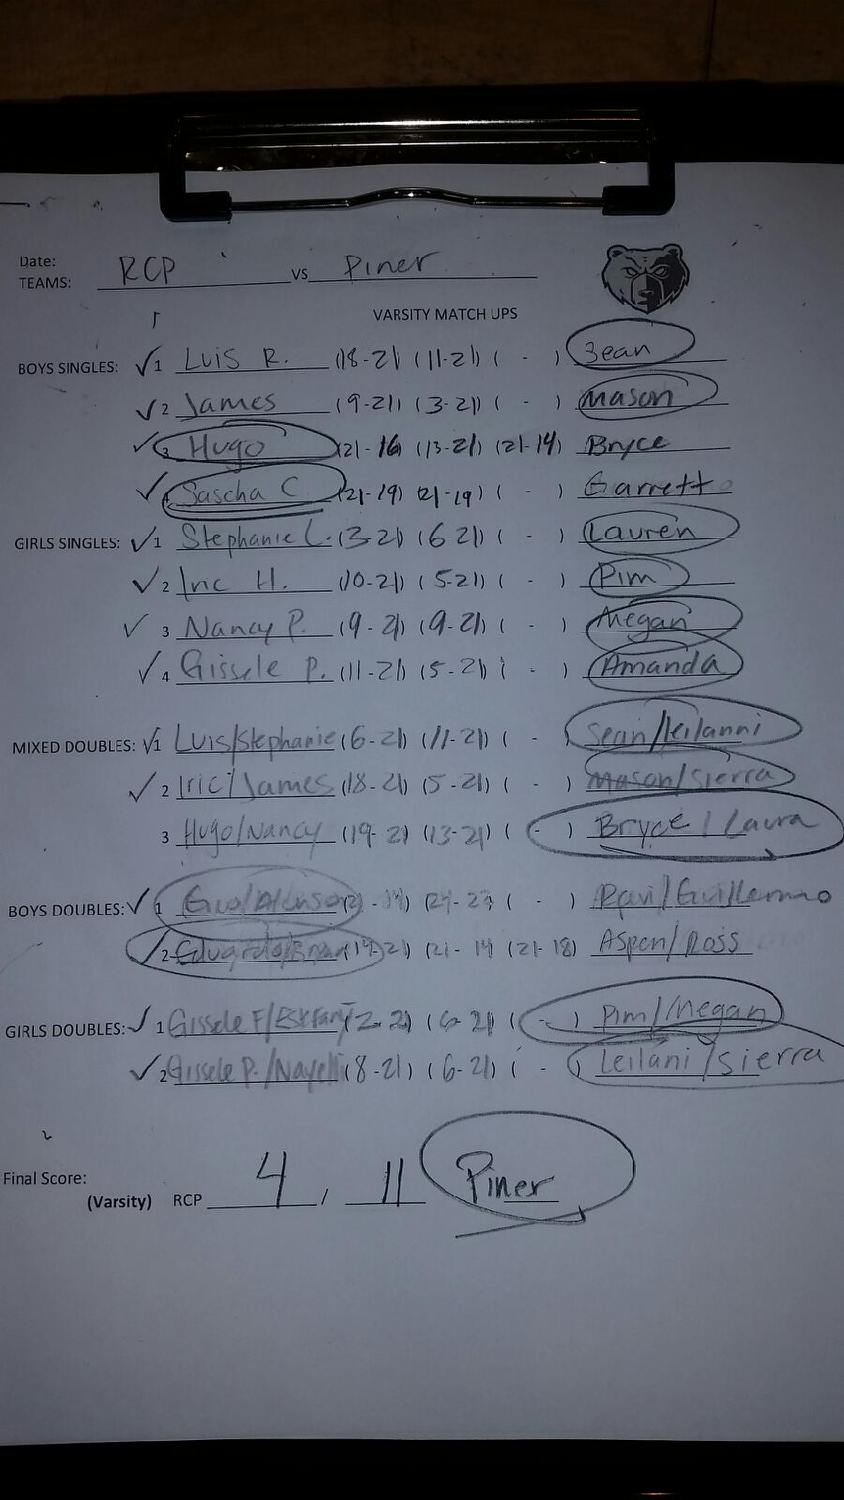 Date:
TEAMS: RCP vs Piner
VARSITY MATCH UPS
BOYS SINGLES: ✓1 Luis R. (18-21) (11-21) ( - ) Sean
✓2 James (9-21) (3-21) ( - ) Mason
✓3 Hugo (21-16) (13-21) (21-14) Bryce
✓4 Sascha C (21-19) (21-19) ( - ) Garrett
GIRLS SINGLES: ✓1 Stephanie L. (3-21) (6 21) ( - ) Lauren
✓2 H. (10-21) (5-21) ( - ) Pim
✓3 Nancy P. (9-21) (9-21) ( - ) Megan
✓4 Gissele P. (11-21) (5-21) ( - ) Amanda
MIXED DOUBLES: ✓1 Luis/Stephanie (6-21) (11-21) ( - ) Sean/Leilanni
✓2 Iric/James (18-21) (5-21) ( - ) Mason/Sierra
3 Hugo/Nancy (19-21) (13-21) ( - ) Bryce/Laura
BOYS DOUBLES: ✓1 ( - ) Ravi/Guillermo
✓2 (21-14) (21-18) Aspen/Ross
GIRLS DOUBLES: ✓1 Gissele F/ (2-21) (6-21) ( - ) Pim/Megan
✓2 Gissele P./Nayelli (8-21) (6-21) ( - ) Leilani/Sierra
Final Score:
(Varsity) RCP 4 / 11 Piner